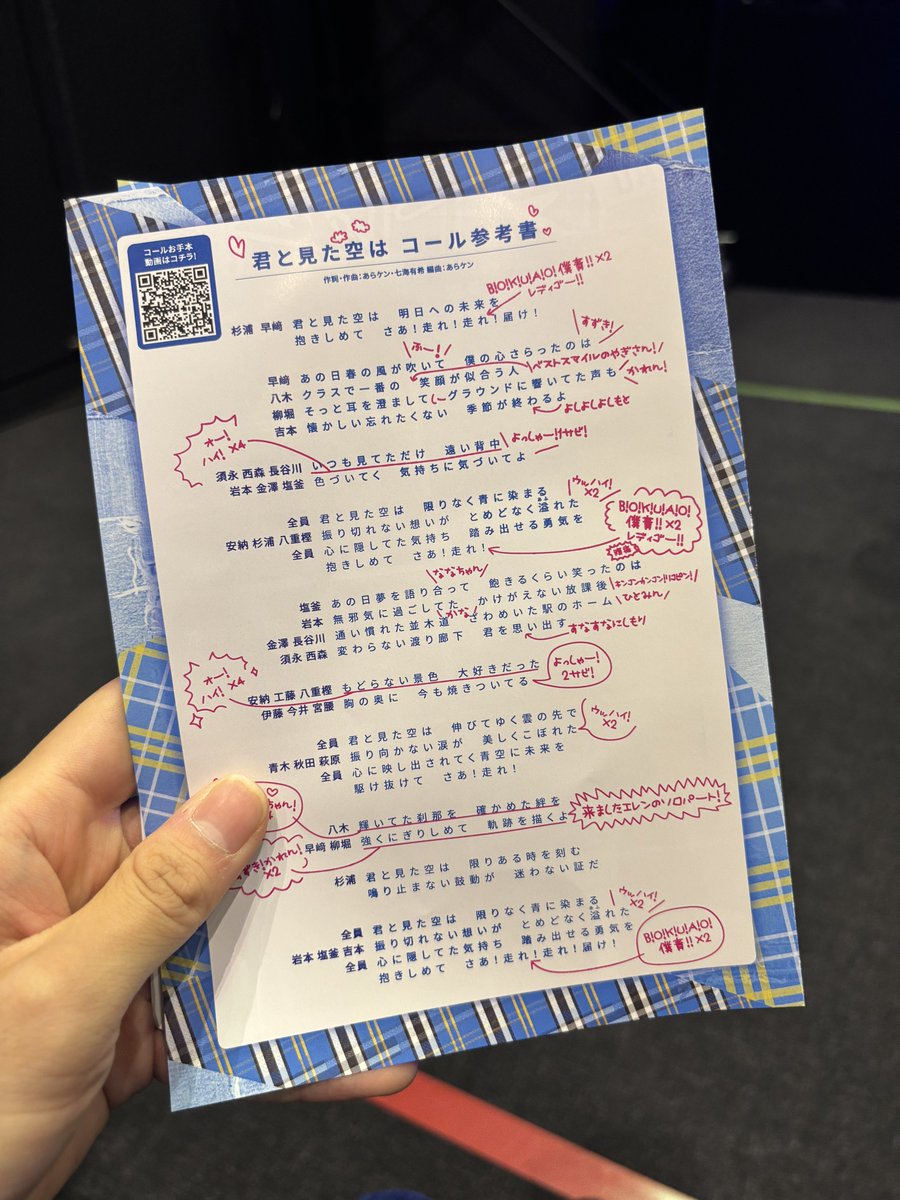 コールお手本
動画はコチラ!
君と見た空は コール参考書
作詞・作曲:あらケン・七海有希 編曲:あらケン
B!O!K!U!A!O! 僕青!!×2
レディゴー!!
杉浦 早﨑 君と見た空は 明日への未来を
抱きしめて さあ!走れ!走れ!届け!
ふー!
すずき!
早﨑 あの日春の風が吹いて 僕の心さらったのは
八木 クラスで一番の 笑顔が似合う人
ベストスマイルのやぎさん!
柳堀 そっと耳を澄まして グラウンドに響いてた声も
かれん!
吉本 懐かしい忘れたくない 季節が終わるよ
よしよしよしもと
オー!
ハイ!×4
須永 西森 長谷川 いつも見てただけ 遠い背中
よっしゃー!!
岩本 金澤 塩釜 色づいてく 気持ちに気づいてよ
全員 君と見た空は 限りなく青に染まる
ウルハイ!
×2
安納 杉浦 八重樫 振り切れない想いが とめどなく溢れた
全員 心に隠してた気持ち 踏み出せる勇気を
抱きしめて さあ!走れ!
B!O!K!U!A!O!
僕青!!×2
レディゴー!!
ななちゃん
塩釜 あの日夢を語り合って 飽きるくらい笑ったのは
岩本 無邪気に過ごしてた かけがえない放課後
かな
金澤 長谷川 通い慣れた並木道 ざわめいた駅のホーム
ひとみん
須永 西森 変わらない渡り廊下 君を思い出す
すなすなにしもり
オー!
ハイ!×4
安納 工藤 八重樫 もどらない景色 大好きだった
伊藤 今井 宮腰 胸の奥に 今も焼きついてる
よっしゃー!
2サビ!
全員 君と見た空は 伸びてゆく雲の先で
ウルハイ!
×2
青木 秋田 萩原 振り向かない涙が 美しくこぼれた
全員 心に映し出されてく青空に未来を
駆け抜けて さあ!走れ!
ちゃん!
八木 輝いてた刹那を 確かめた絆を
早﨑 柳堀 強くにぎりしめて 軌跡を描くよ
来ましたエレンのソロパート!
ずき!かれん!
×2
杉浦 君と見た空は 限りある時を刻む
鳴り止まない鼓動が 迷わない証だ
全員 君と見た空は 限りなく青に染まる
ウルハイ!
×2
岩本 塩釜 吉本 振り切れない想いが とめどなく溢れた
全員 心に隠してた気持ち 踏み出せる勇気を
抱きしめて さあ!走れ!走れ!届け!
B!O!K!U!A!O!
僕青!!×2